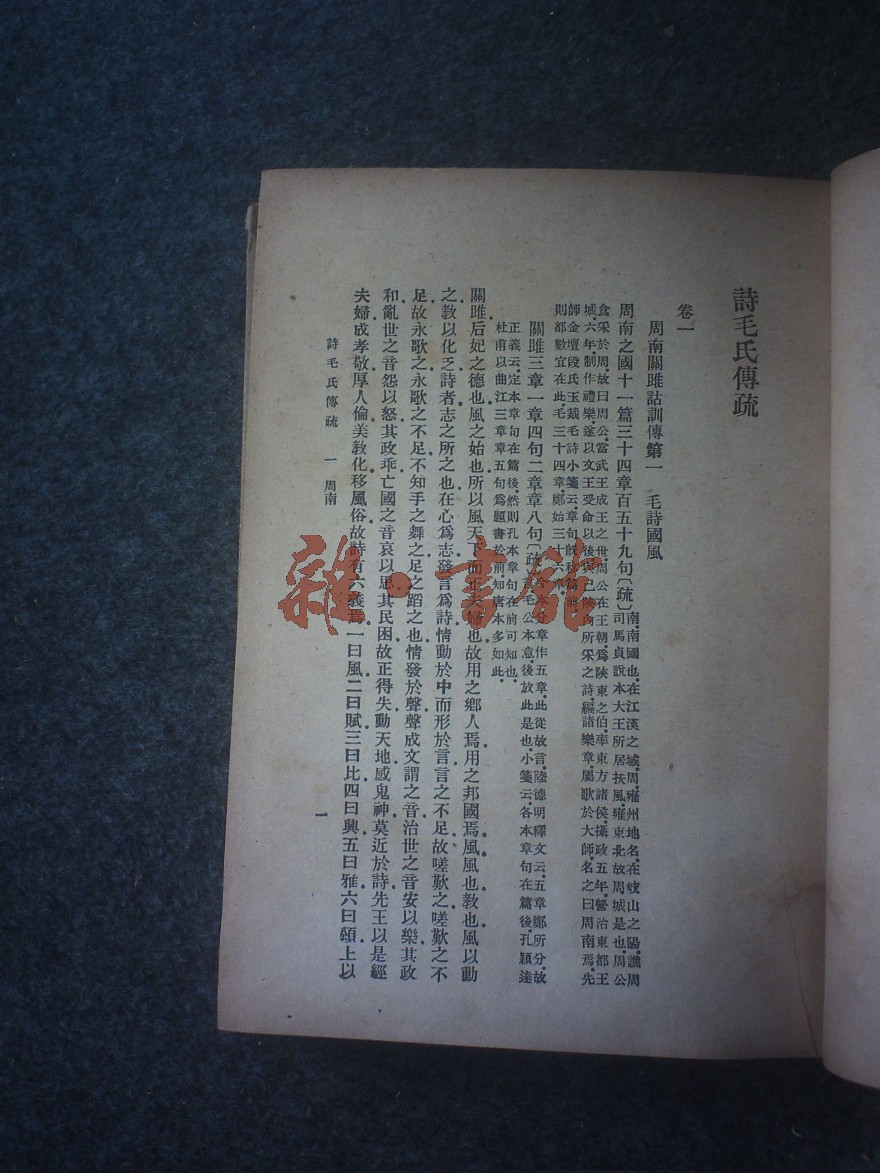 詩毛氏傳疏
卷一
周南關雎詁訓傳第一　毛詩國風
周南之國十一篇三十四章百五十九句〔疏〕南.南國也.在江漢之域.周.雍州地名.在岐山之陽.譙周
司馬貞說本大王所居扶風.雍東北故周城是也.周公
食采於周.故曰周公.當武王成王之世.周公在王朝.爲陝東之伯.率東方諸侯.攝政五年.營治東都王
城.六年.制作禮樂.遂以文王受命以後.與己陝內所采之詩.編諸樂章.屬歌於大師.名之曰周南焉.先
師金壇段氏玉裁毛詩小箋云.章句旣移篇前.
則都數宜在此.毛三十四章.鄭始三十六章.
關雎三章一章四句二章章八句〔疏〕今本分章作五章.此從故言.陸德明釋文云.五章鄭所分.故
言毛公本意.後放此是也.小箋云.各本章句在篇後.孔穎達
正義云.定本章句在篇後.然則孔本章句在前可知也.
杜甫以曲江三章章五句爲題書於前.知唐本多如此.
關雎后妃之德也.風之始也.所以風天下而正夫婦也.故用之鄉人焉.用之邦國焉.風風也.敎也.風以動
之.敎以化之.詩者.志之所之也.在心爲志.發言爲詩.情動於中而形於言.言之不足.故嗟歎之.嗟歎之不
足.故永歌之.永歌之不足.不知手之舞之足之蹈之也.情發於聲.聲成文謂之音.治世之音安以樂.其政
和.亂世之音怨以怒.其政乖.亡國之音哀以思.其民困.故正得失.動天地.感鬼神.莫近於詩.先王以是經
夫婦.成孝敬.厚人倫.美敎化.移風俗.故詩有六義焉.一曰風.二曰賦.三曰比.四曰興.五曰雅.六曰頌.上以
詩毛氏傳疏　一　周南
一
雜·書館